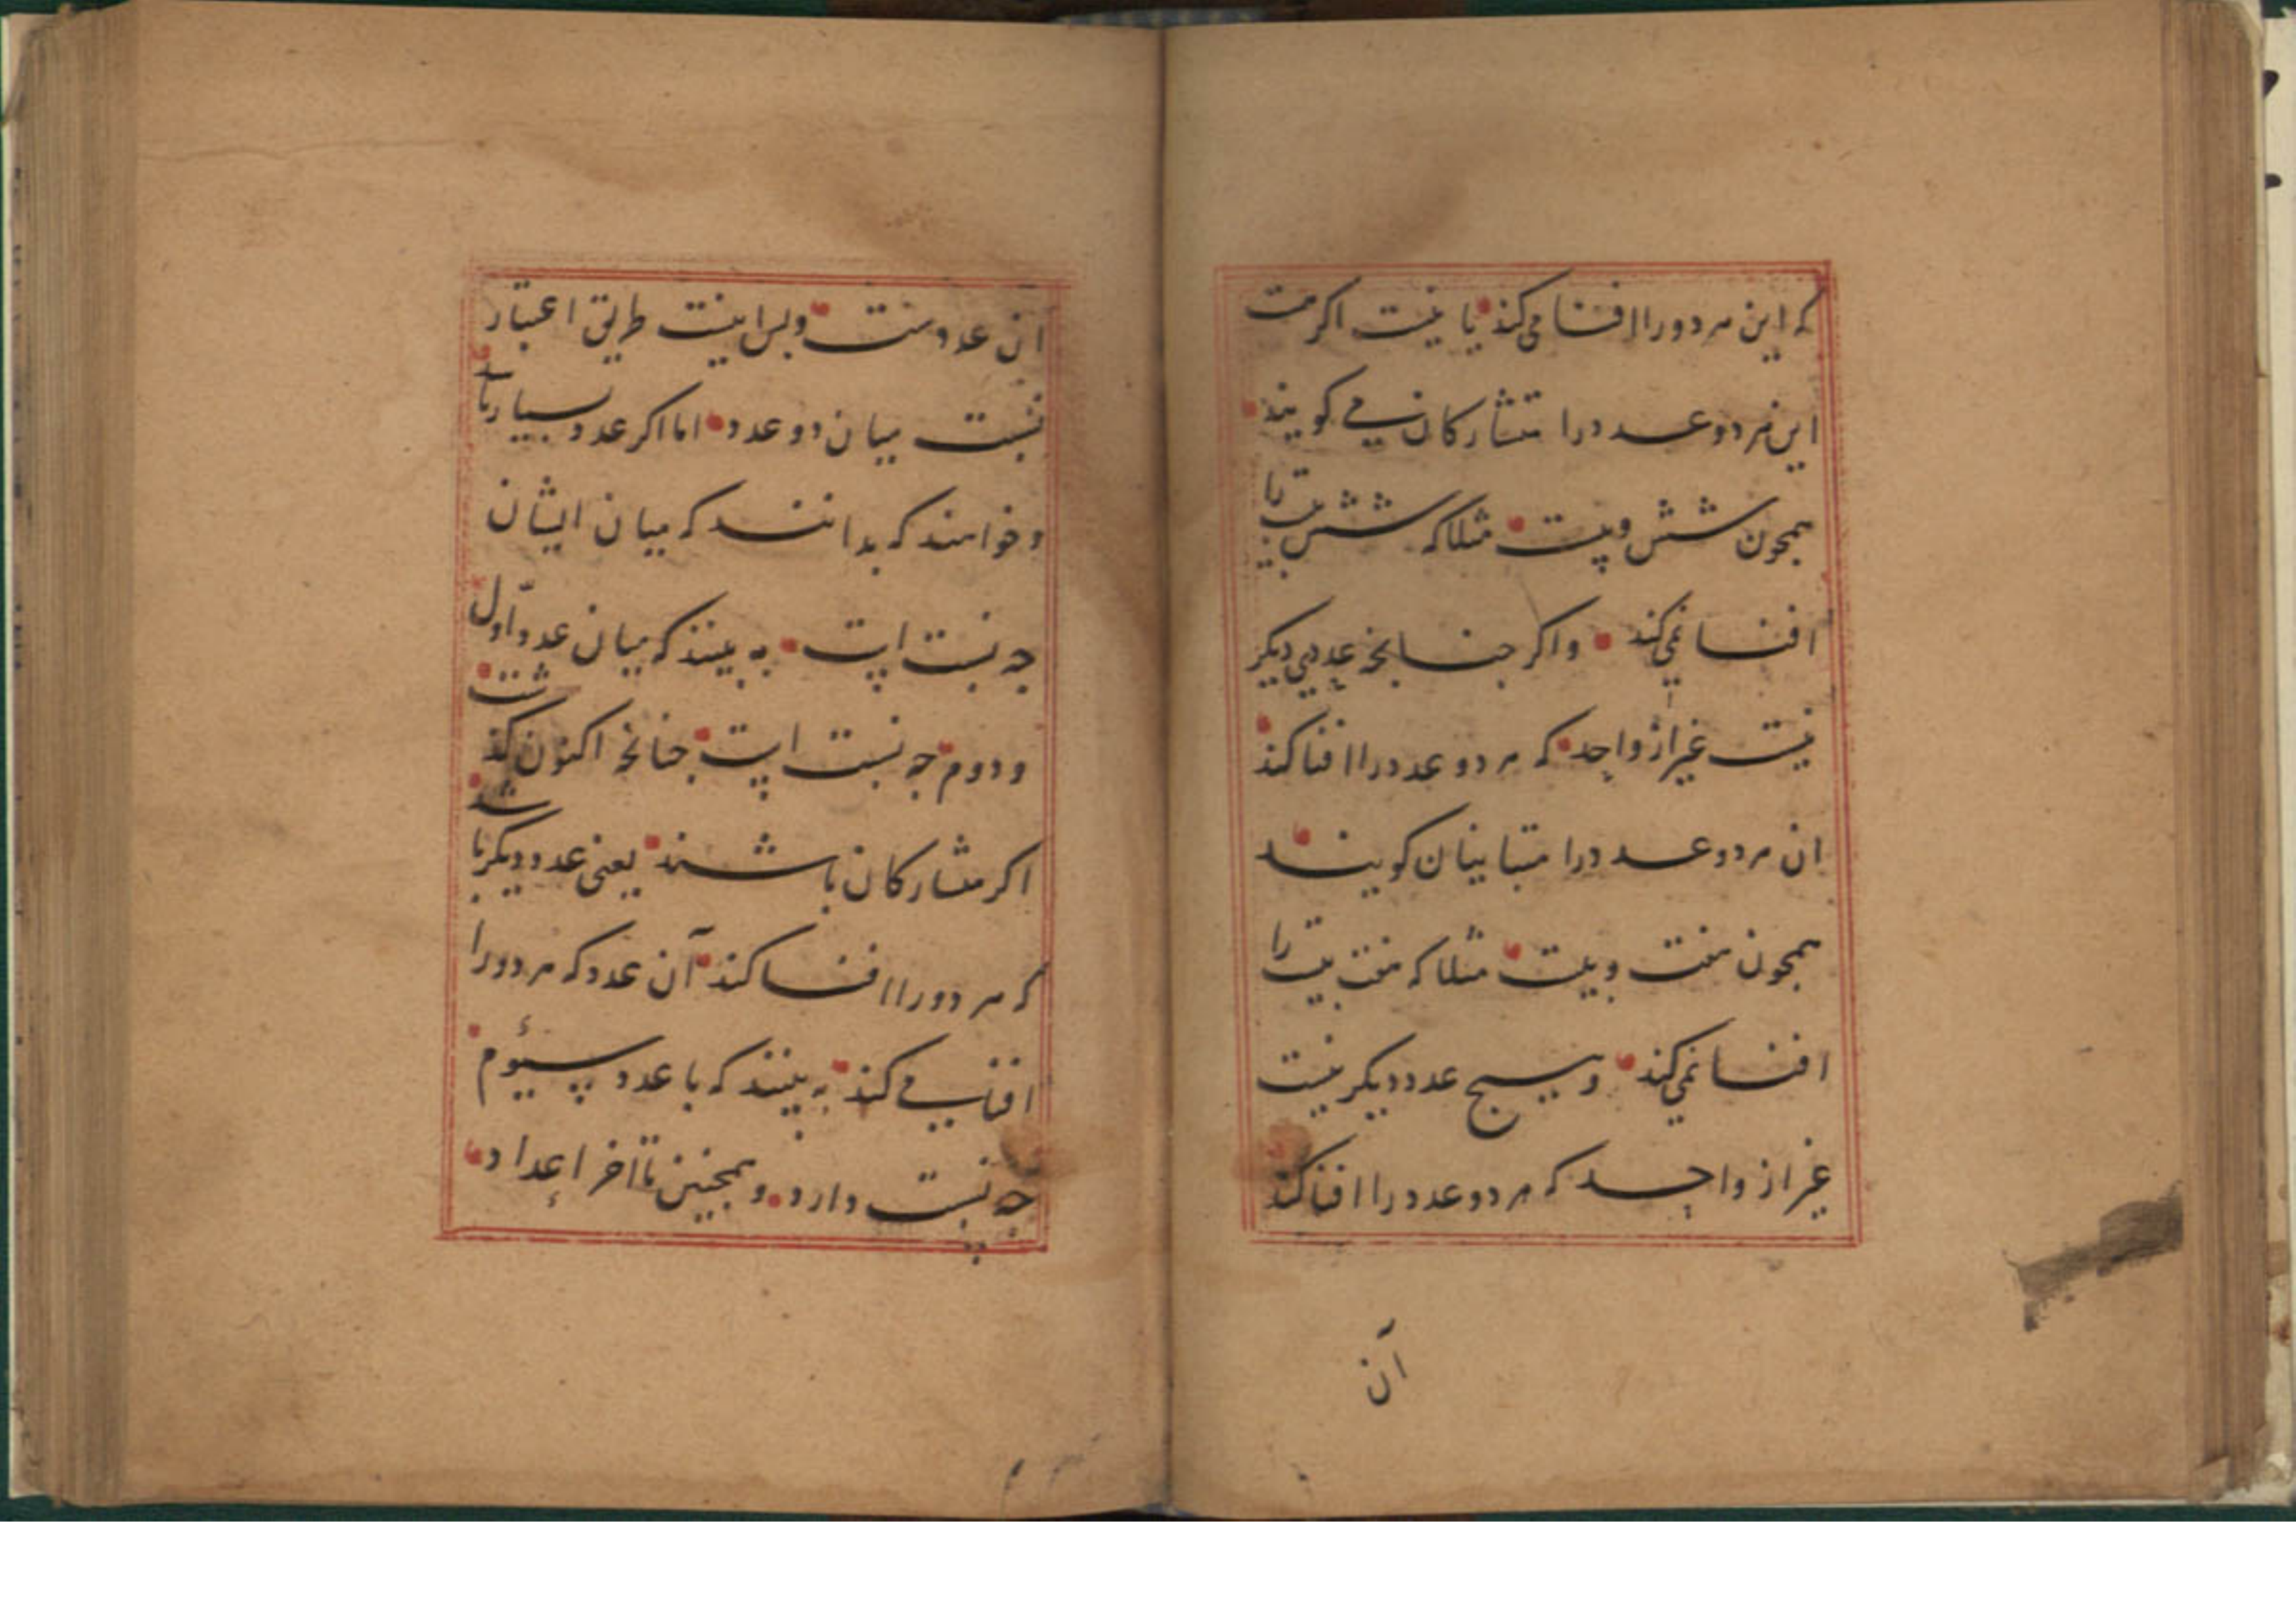 که این هر دو را افنا می کند یا نیست اکر هست
این هر دو عدد را متشارکان می کویند
همجون شش و بیست مثلا که شش بیست را
افنا نمی کند واکر جنانجه عددی دیکر
نیست غیر از واحد که هر دو عدد را افنا کند
ان هر دو عدد را متباینان کویند
همجون هفت و بیست مثلا که هفت بیست را
افنا نمی کند و هیج عدد دیکر نیست
غیر از واحد که هر دو عدد را افنا کند
آن
ان عددست وبس اینست طریق اعتبار
نسبت میان دو عدد اما اکر عدد بسیار باشد
وخواهند که بدانند که میان ایشان
جه نسبت است به بینند که میان عدد اول
و دوم جه نسبت است جنانجه اکنون کذشت
اکر متشارکان باشند یعنی عدد دیکر باشد
که هر دو را افنا کند آن عدد که هر دو را
افنا می کند به بینند که با عدد سیوم
جه نسبت دارد و همجنین تا اخر اعداد